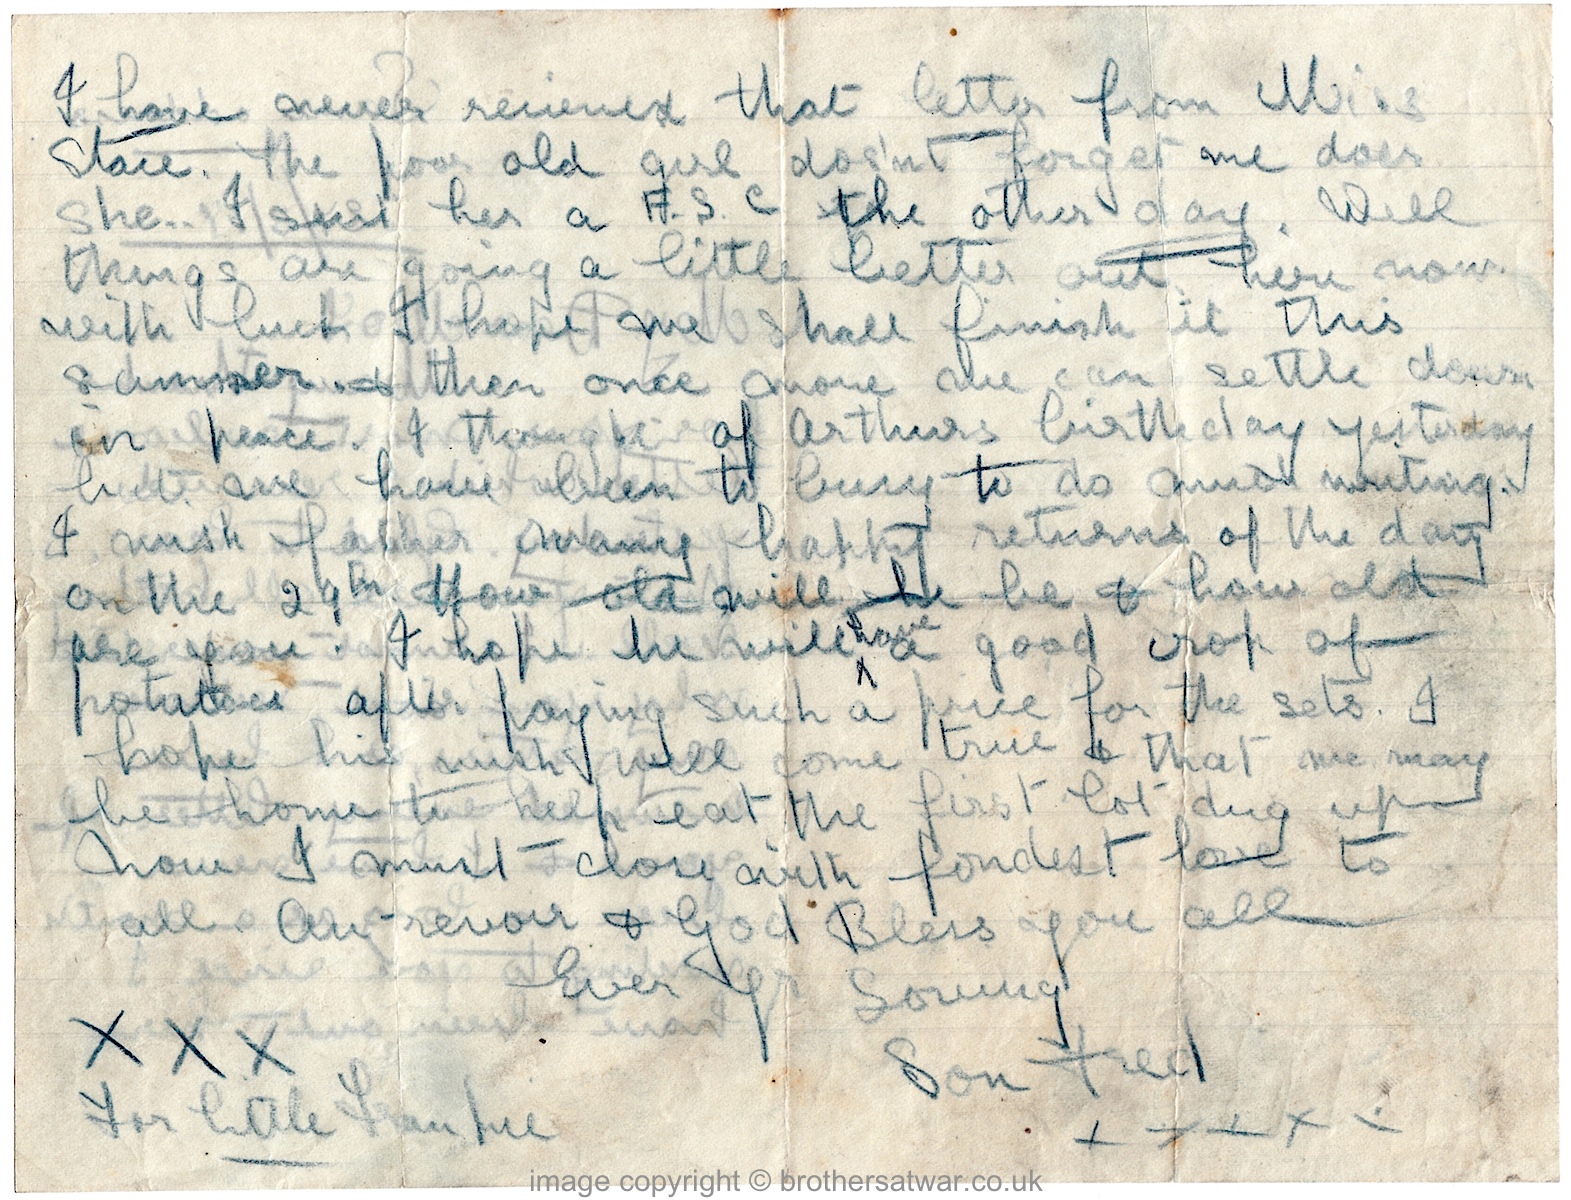 I have never recieved that letter from Miss
Stace. The poor old girl dos'nt forget me does
she.. I sent her a F.S.C the other day. Well
things are going a little better out here now.
with luck I hope we shall finish it this
summer. & then once more we can settle down
in peace. I thought of Arthurs birthday yesterday
but we have been to busy to do any writing.
I wish father many happy returns of the day
on the 29th. How old will he be & how old
are you. I hope he will have a good crop of
potatoes after paying such a price for the sets. I
hope his wish will come true & that we may
be home to help eat the first lot dug up
now I must close with fondest love to
all Au-revoir & God Bless you all
Ever Yr Loving
Son Fred
X X X
For Little Frankie
X X X X X
image copyright © brothersatwar.co.uk